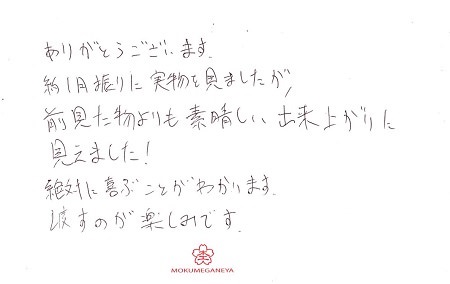 ありがとうございます。
約1月振りに実物を見ましたが、
前見た物よりも素晴しい出来上がりに
見えました！
絶対に喜ぶことがわかります。
渡すのが楽しみです。
MOKUMEGANEYA